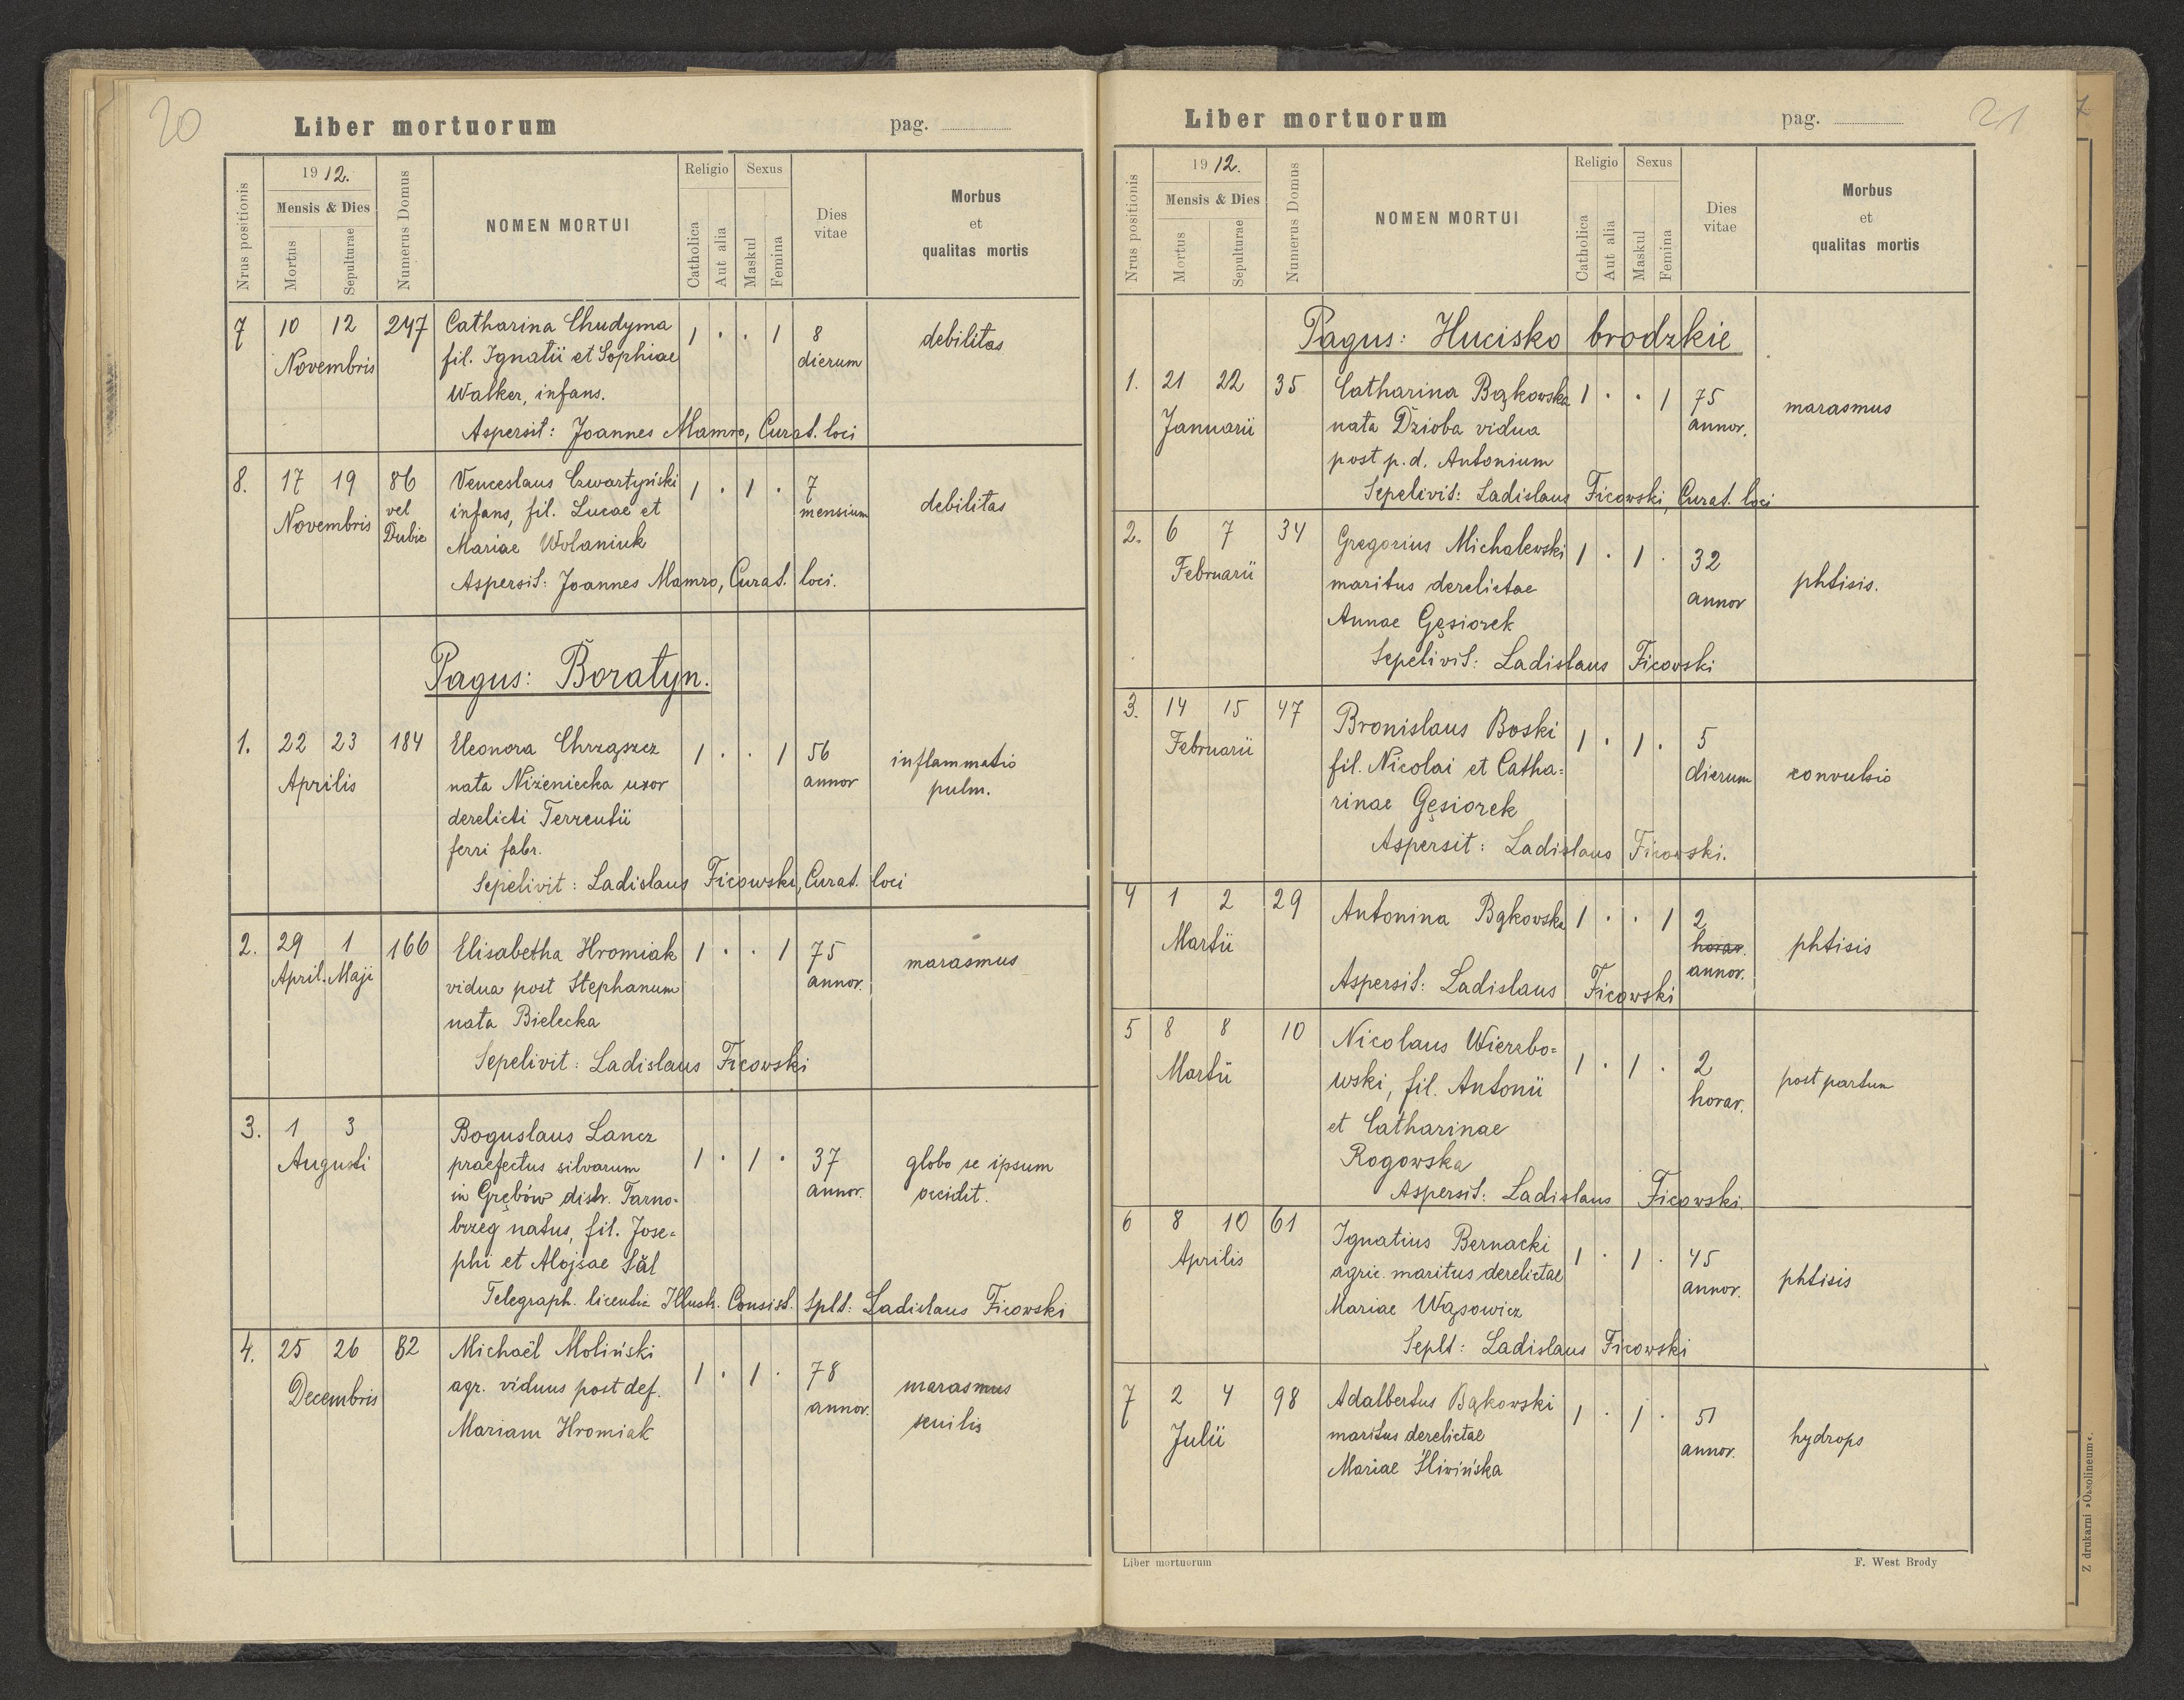 20
Liber mortuorum pag.
Nrus positionis
1912.
Mensis & Dies
Mortus
Sepulturae
Numerus Domus
NOMEN MORTUI
Religio
Catholica
Aut alia
Sexus
Maskul
Femina
Dies
vitae
Morbus
et
qualitas mortis
7 10 12 247 Catharina Chudyma 1 . . 1 8 debilitas
Novembris fil. Ignatii et Sophiae dierum
Walker, infans.
Aspersit: Joannes Mamro, Curat. loci
8. 17 19 86 Venceslaus Czwartyński 1 . 1 . 7 debilitas
Novembris vel infans, fil. Lucae et mensium
Dubie Mariae Wolaniuk
Aspersit: Joannes Mamro, Curat. loci.
Pagus: Boratyn.
1. 22 23 184 Eleonora Chrząszcz 1 . . 1 56 inflammatio
Aprilis nata Niżeniecka uxor annor pulm.
derelicti Terrentii
ferri fabr.
Sepelivit: Ladislaus Ficowski, Curat. loci
2. 29 1 166 Elisabetha Hromiak 1 . . 1 75 marasmus
April. Maji vidua post Stephanum annor.
nata Bielecka
Sepelivit: Ladislaus Ficowski
3. 1 3 Boguslaus Lancz
Augusti praefectus silvarum 1 . 1 . 37 globo se ipsum
in Grębów distr. Tarno- annor. occidit.
brzeg natus, fil. Jose=
phi et Alojsae Săl
Telegraph. licentia Illustr. Consist. Splt: Ladislaus Ficowski
4. 25 26 82 Michaël Moliński
Decembris agr. viduus post def. 1 . 1 . 78 marasmus
Mariam Hromiak annor. senilis
21
Liber mortuorum pag.
Nrus positionis
1912.
Mensis & Dies
Mortus
Sepulturae
Numerus Domus
NOMEN MORTUI
Religio
Catholica
Aut alia
Sexus
Maskul
Femina
Dies
vitae
Morbus
et
qualitas mortis
Pagus: Hucisko brodzkie
1. 21 22 35 Catharina Bąkowska 1 . . 1 75 marasmus
Januarii nata Dzioba vidua annor.
post p.d. Antonium
Sepelivit: Ladislaus Ficowski, Curat. loci
2. 6 7 34 Gregorius Michalewski 1 . 1 . 32 phtisis.
Februarii maritus derelictae annor
Annae Gęsiorek
Sepelivit: Ladislaus Ficowski
3. 14 15 47 Bronislaus Boski 1 . 1 . 5
Februarii fil. Nicolai et Catha= dierum convulsio
rinae Gęsiorek
Aspersit: Ladislaus Ficowski.
4 1 2 29 Antonina Bąkowska 1 . . 1 2 phtisis
Martii horar.
annor.
Aspersit: Ladislaus Ficowski
5 8 8 10 Nicolaus Wierzbo= 1 . 1 . 2 post partum
Martii wski, fil. Antonii horar.
et Catharinae
Rogowska
Aspersit: Ladislaus Ficowski.
6 8 10 61 Ignatius Bernacki 1 . 1 . 45 phtisis
Aprilis agric. maritus derelictae annor.
Mariae Wąsowicz
Seplt: Ladislaus Ficowski
7 2 4 98 Adalbertus Bąkowski 1 . 1 . 51 hydrops
Julii maritus derelictae annor.
Mariae Śliwińska
Liber mortuorum F. West Brody
Z drukarni »Ossolineum«.